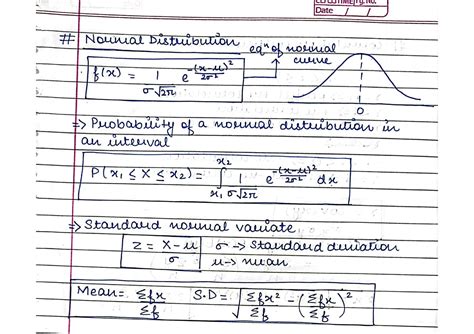 Date / /
# Normal Distribution eqⁿ of normal curve
f(x) = 1/(σ√2π) e^(-(x-μ)²/2σ²)
0
⇒ Probability of a normal distribution in
an interval
P(x₁ ≤ X ≤ x₂) = ∫_{x₁}^{x₂} 1/(σ√2π) e^(-(x-μ)²/2σ²) dx
⇒ Standard normal variate
Z = X-μ/σ σ → Standard deviation
μ → mean
Mean = Σfx/Σf S.D = √(Σfx²/Σf - (Σfx/Σf)²)